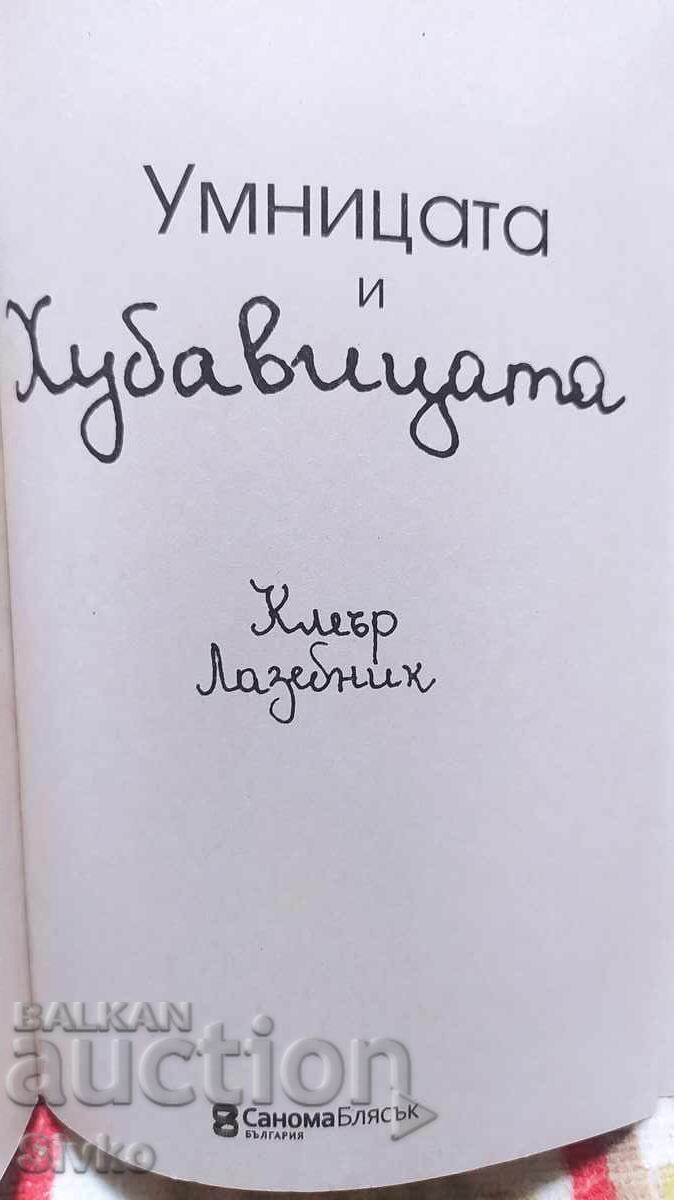 Умницата
и
Хубавицата
Клеър
Лазебник
BALKAN
auction
СаномаБлясък
БЪЛГАРИЯ
Sivko